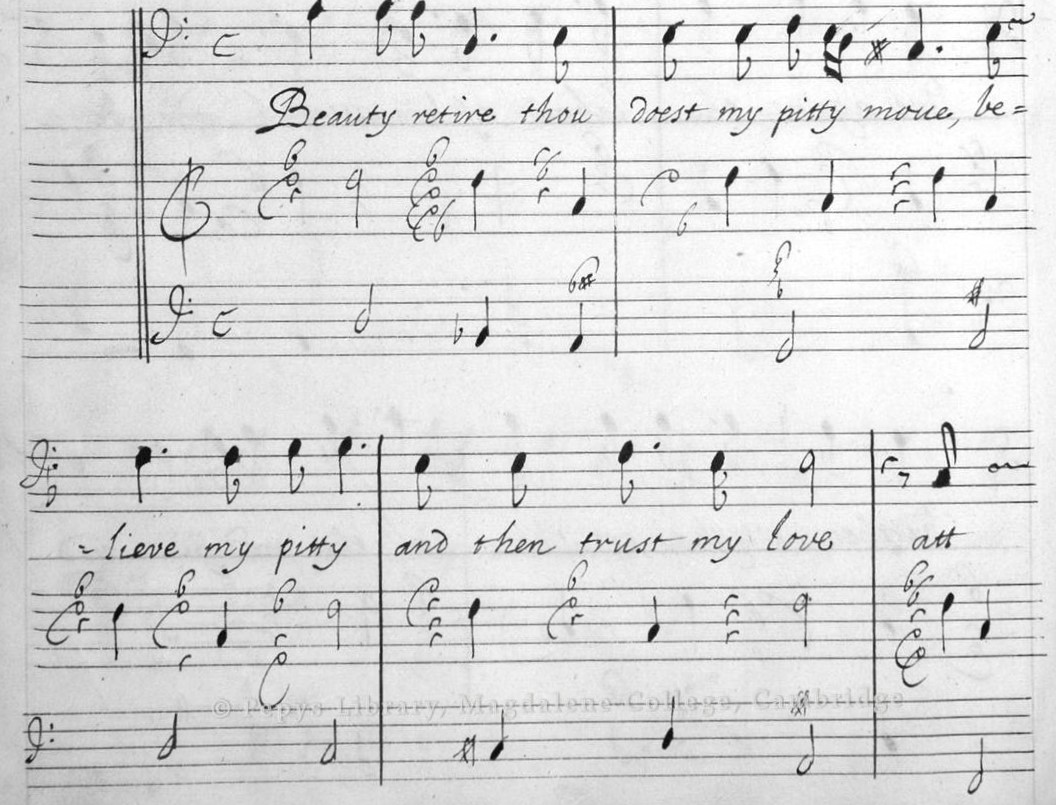 Beauty retire thou doest my pitty moue, be=
=lieve my pitty and then trust my love att
© Pepys Library, Magdalene College, Cambridge